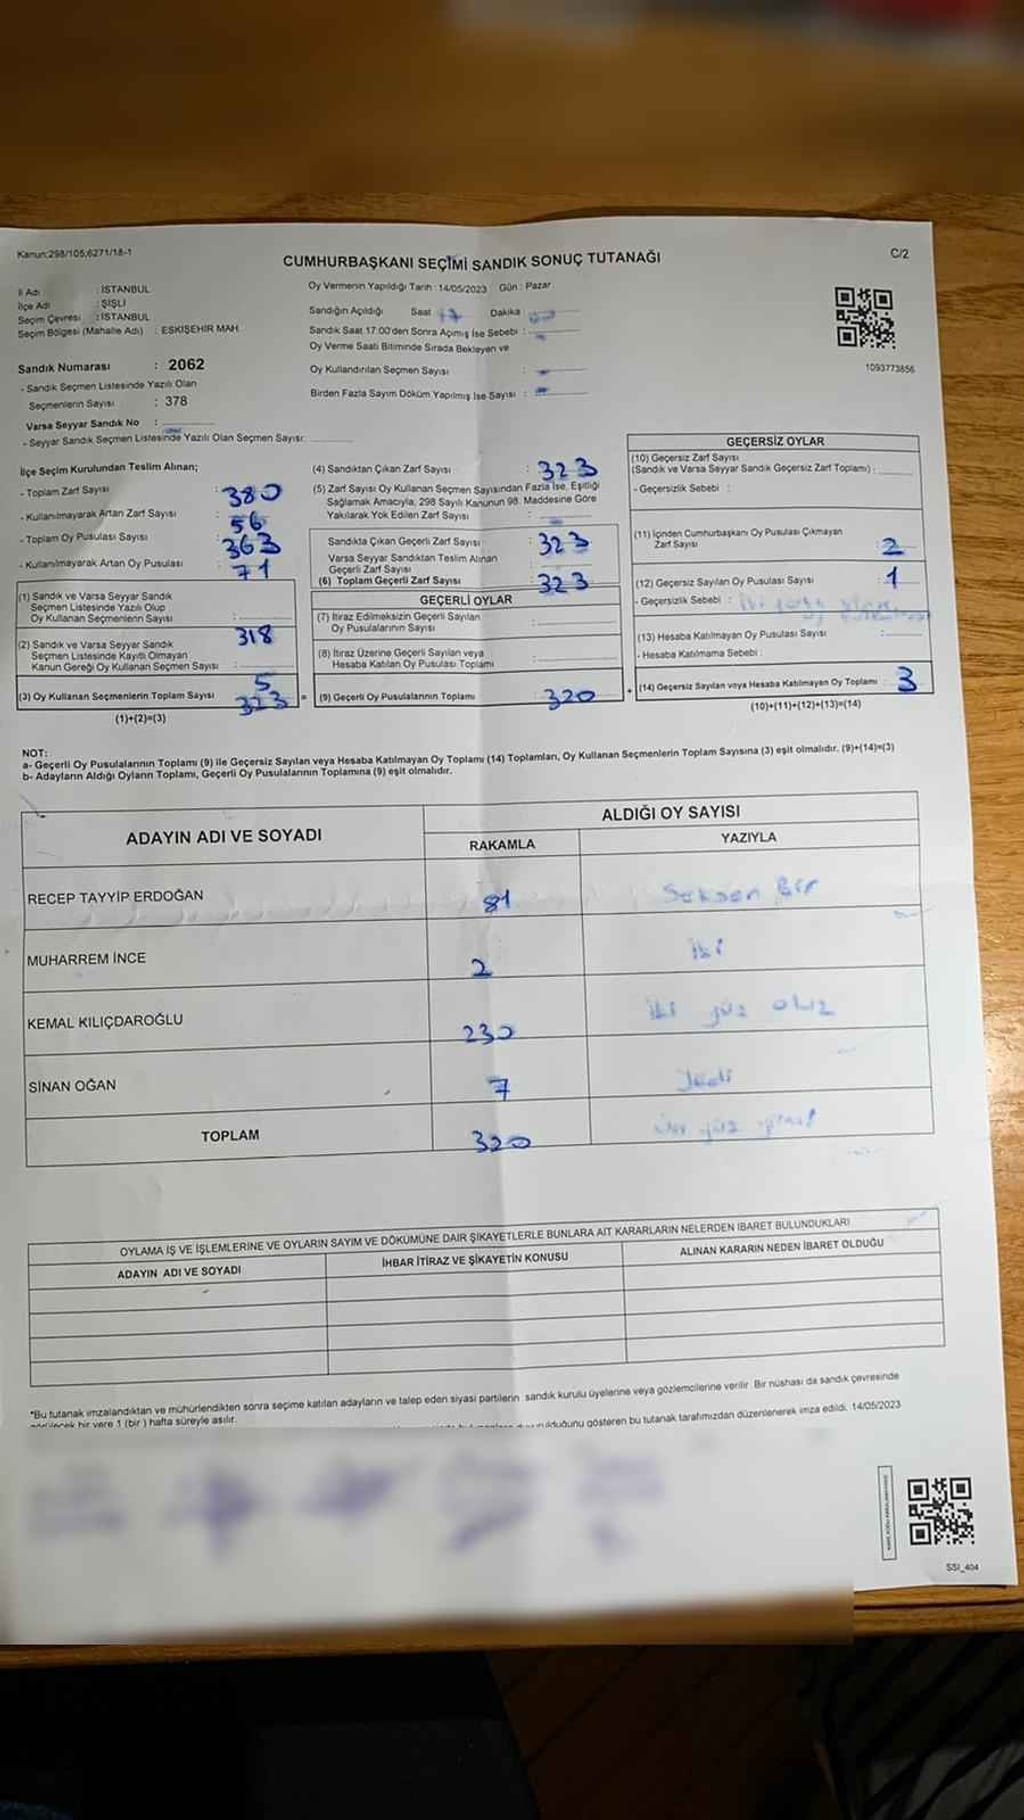 Kanun:298/105,6271/18-1
CUMHURBAŞKANI SEÇİMİ SANDIK SONUÇ TUTANAĞI
C/2
İl Adı : İSTANBUL
İlçe Adı : ŞİŞLİ
Seçim Çevresi : İSTANBUL
Seçim Bölgesi (Mahalle Adı) : ESKİŞEHİR MAH.
Sandık Numarası : 2062
- Sandık Seçmen Listesinde Yazılı Olan
Seçmenlerin Sayısı : 378
Varsa Seyyar Sandık No :
- Seyyar Sandık Seçmen Listesinde Yazılı Olan Seçmen Sayısı:
Oy Vermenin Yapıldığı Tarih : 14/05/2023 Gün : Pazar
Sandığın Açıldığı Saat 17 Dakika
Sandık Saat 17:00'den Sonra Açımış İse Sebebi :
Oy Verme Saati Bitiminde Sırada Bekleyen ve
Oy Kullandırılan Seçmen Sayısı :
Birden Fazla Sayım Döküm Yapılmış İse Sayısı :
1093773856
İlçe Seçim Kurulundan Teslim Alınan;
- Toplam Zarf Sayısı : 380
- Kullanılmayarak Artan Zarf Sayısı : 56
- Toplam Oy Pusulası Sayısı : 363
- Kullanılmayarak Artan Oy Pusulası : 71
(1) Sandık ve Varsa Seyyar Sandık
Seçmen Listesinde Yazılı Olup
Oy Kullanan Seçmenlerin Sayısı : 318
(2) Sandık ve Varsa Seyyar Sandık
Seçmen Listesinde Kayıtlı Olmayan
Kanun Gereği Oy Kullanan Seçmen Sayısı : 5
(3) Oy Kullanan Seçmenlerin Toplam Sayısı 323
(1)+(2)=(3)
(4) Sandıktan Çıkan Zarf Sayısı : 323
(5) Zarf Sayısı Oy Kullanan Seçmen Sayısından Fazla İse, Eşitliği
Sağlamak Amacıyla, 298 Sayılı Kanunun 98. Maddesine Göre
Yakılarak Yok Edilen Zarf Sayısı :
Sandıkta Çıkan Geçerli Zarf Sayısı : 323
Varsa Seyyar Sandıktan Teslim Alınan
Geçerli Zarf Sayısı :
(6) Toplam Geçerli Zarf Sayısı : 323
GEÇERLİ OYLAR
(7) İtiraz Edilmeksizin Geçerli Sayılan
Oy Pusulalarının Sayısı :
(8) İtiraz Üzerine Geçerli Sayılan veya
Hesaba Katılan Oy Pusulası Toplamı :
= (9) Geçerli Oy Pusulalarının Toplamı : 320
GEÇERSİZ OYLAR
(10) Geçersiz Zarf Sayısı
(Sandık ve Varsa Seyyar Sandık Geçersiz Zarf Toplamı) :
- Geçersizlik Sebebi :
(11) İçinden Cumhurbaşkanı Oy Pusulası Çıkmayan
Zarf Sayısı : 2
(12) Geçersiz Sayılan Oy Pusulası Sayısı : 1
- Geçersizlik Sebebi :
(13) Hesaba Katılmayan Oy Pusulası Sayısı :
- Hesaba Katılmama Sebebi :
+ (14) Geçersiz Sayılan veya Hesaba Katılmayan Oy Toplamı : 3
(10)+(11)+(12)+(13)=(14)
NOT:
a- Geçerli Oy Pusulalarının Toplamı (9) ile Geçersiz Sayılan veya Hesaba Katılmayan Oy Toplamı (14) Toplamları, Oy Kullanan Seçmenlerin Toplam Sayısına (3) eşit olmalıdır. (9)+(14)=(3)
b- Adayların Aldığı Oyların Toplamı, Geçerli Oy Pusulalarının Toplamına (9) eşit olmalıdır.
ADAYIN ADI VE SOYADI
ALDIĞI OY SAYISI
RAKAMLA YAZIYLA
RECEP TAYYİP ERDOĞAN 81 Seksen Bir
MUHARREM İNCE 2 iki
KEMAL KILIÇDAROĞLU 230 iki yüz otuz
SİNAN OĞAN 7 Yedi
TOPLAM 320 üç yüz yirmi
OYLAMA İŞ VE İŞLEMLERİNE VE OYLARIN SAYIM VE DÖKÜMÜNE DAİR ŞİKAYETLERLE BUNLARA AİT KARARLARIN NELERDEN İBARET BULUNDUKLARI
ADAYIN ADI VE SOYADI İHBAR İTİRAZ VE ŞİKAYETİN KONUSU ALINAN KARARIN NEDEN İBARET OLDUĞU
*Bu tutanak imzalandıktan ve mühürlendikten sonra seçime katılan adayların ve talep eden siyasi partilerin sandık kurulu üyelerine veya gözlemcilerine verilir. Bir nüshası da sandık çevresinde
bir yere 1 (bir) hafta süreyle asılır.
gösteren bu tutanak tarafımızdan düzenlenerek imza edildi. 14/05/2023
SSI_404